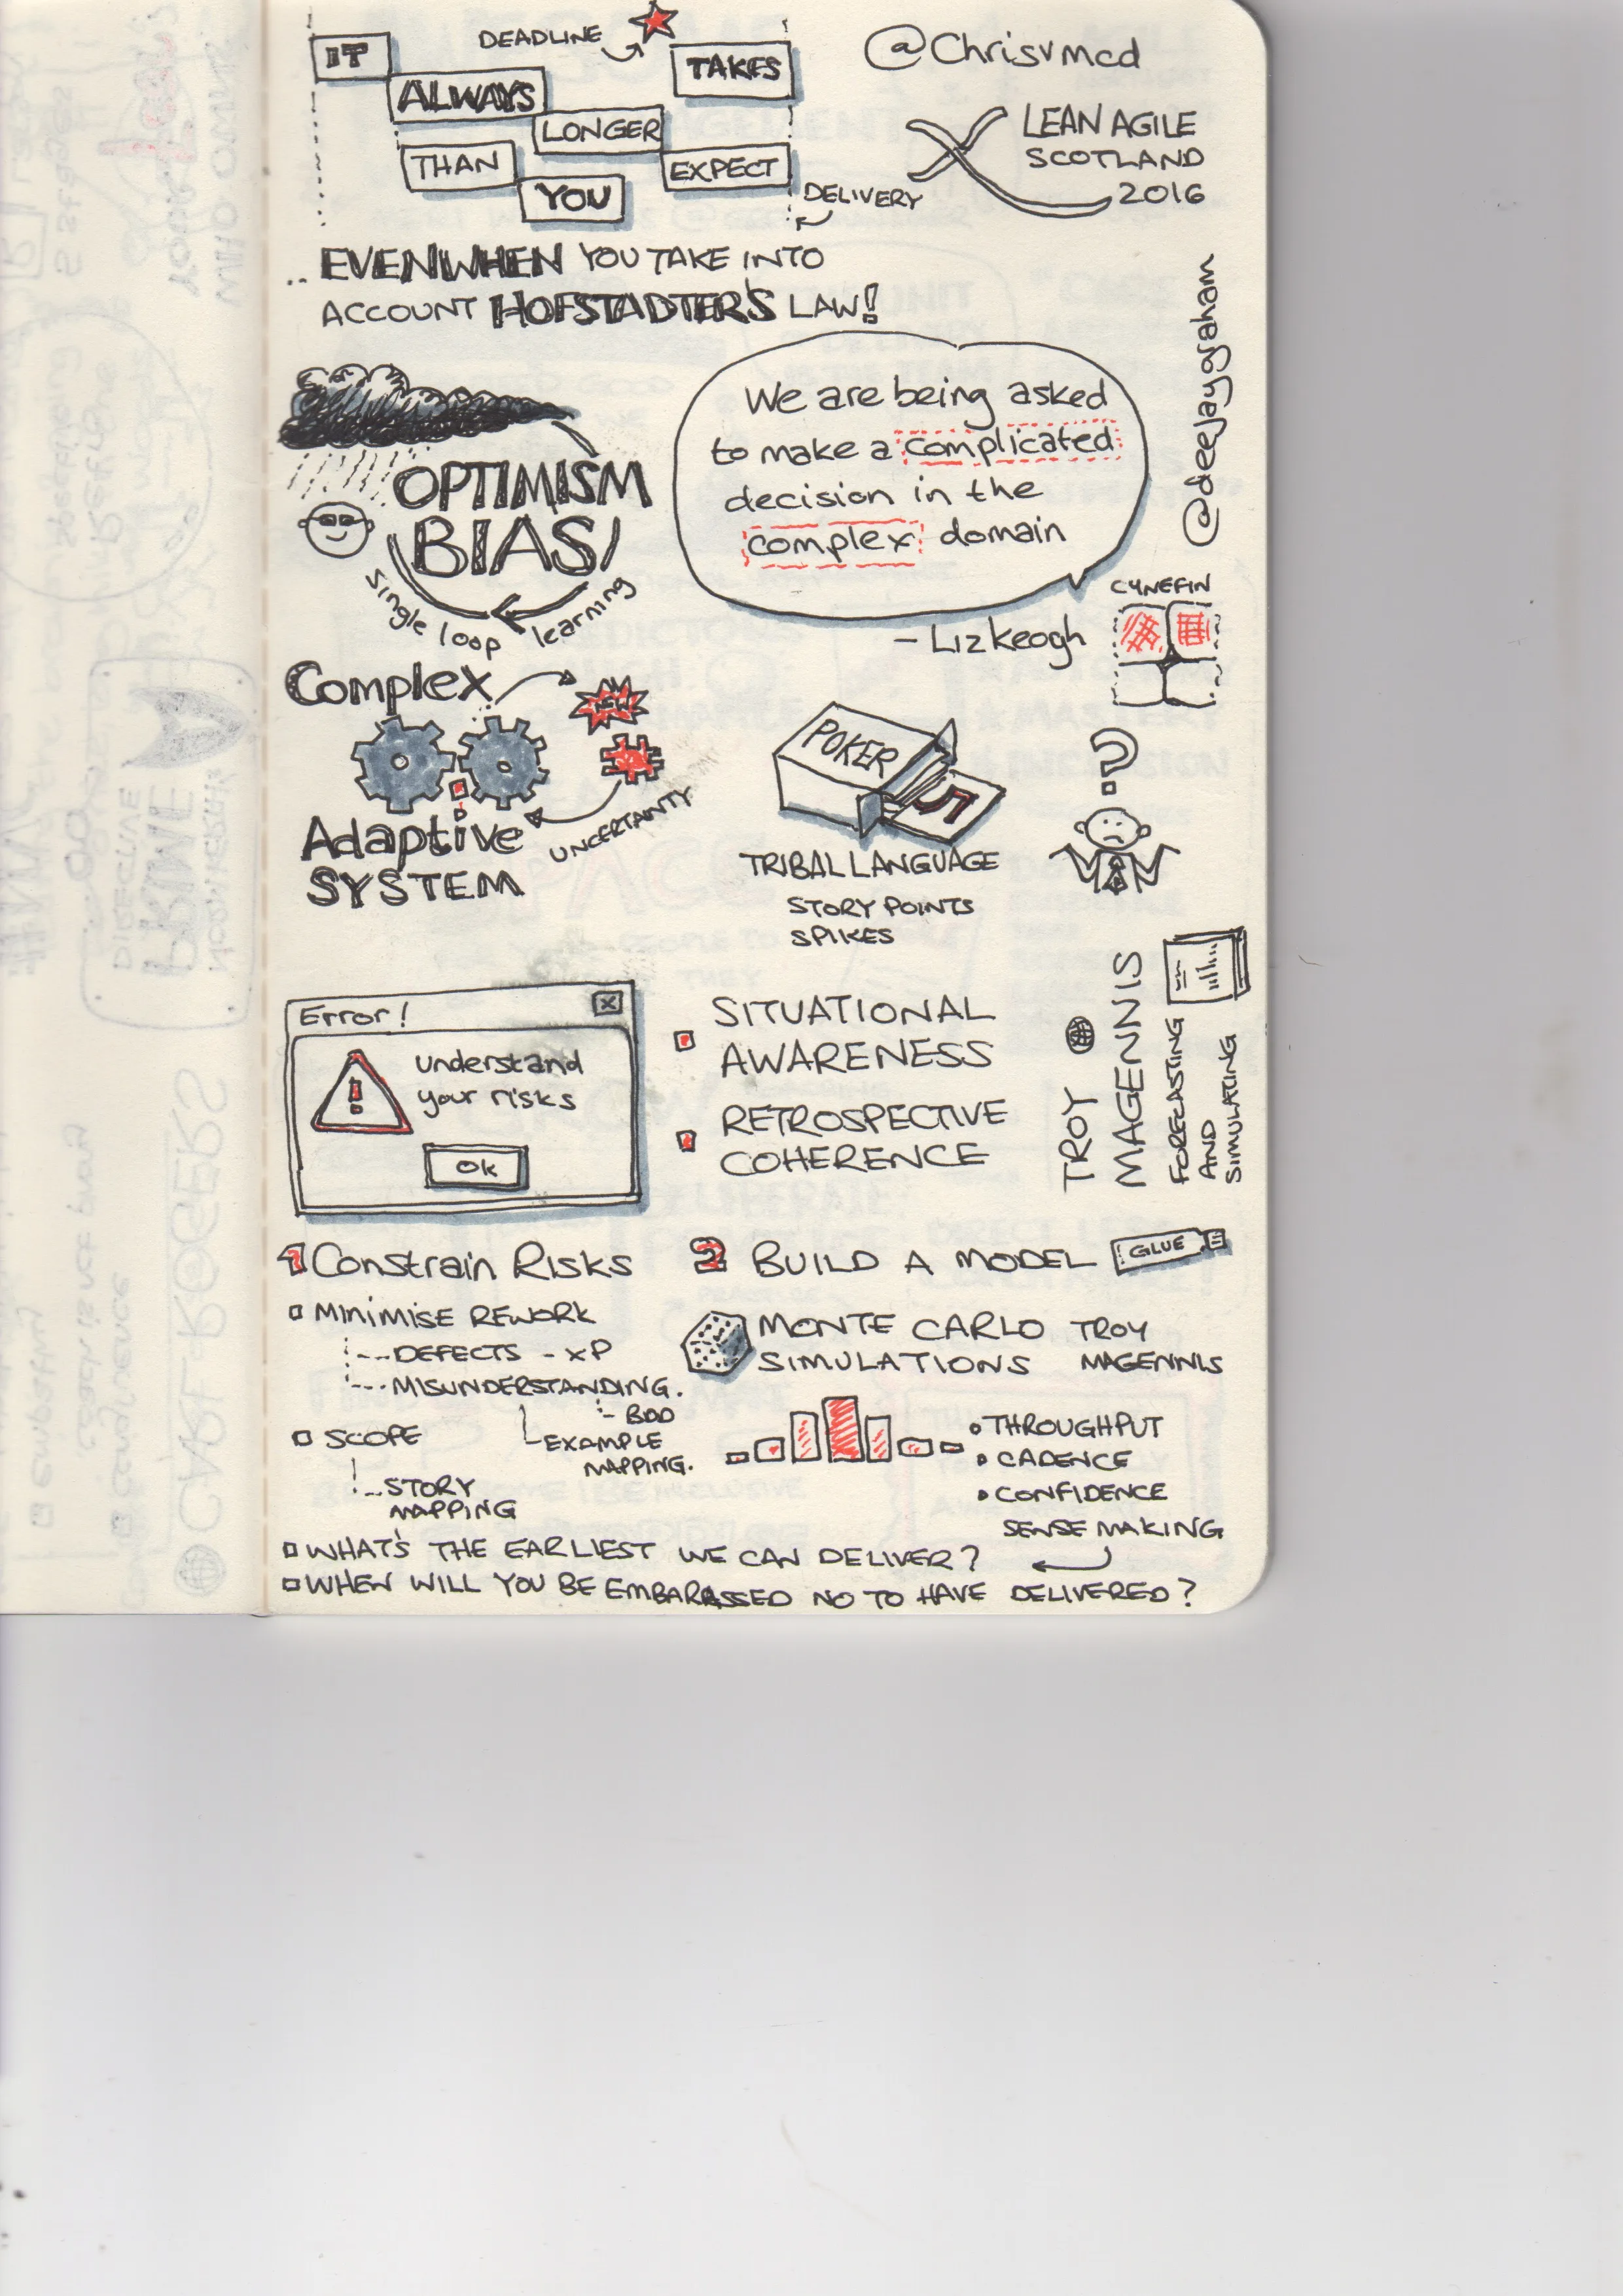 IT
DEADLINE
TAKES
ALWAYS
LONGER
THAN
EXPECT
YOU
DELIVERY
@Chrisvmcd
LEAN AGILE
SCOTLAND
2016
.. EVEN WHEN YOU TAKE INTO
ACCOUNT HOFSTADTER'S LAW!
@deejaygraham
OPTIMISM
BIAS
single loop learning
We are being asked
to make a complicated
decision in the
complex domain
- Liz Keogh
CYNEFIN
Complex
NEW
Adaptive
SYSTEM
UNCERTAINTY
POKER
5
?
TRIBAL LANGUAGE
STORY POINTS
SPIKES
Error!
x
!
understand
your risks
Ok
SITUATIONAL
AWARENESS
RETROSPECTIVE
COHERENCE
TROY
MAGENNIS
FORECASTING
AND
SIMULATING
1 Constrain Risks
MINIMISE REWORK
DEFECTS - XP
MISUNDERSTANDING.
- BDD
EXAMPLE
MAPPING.
SCOPE
STORY
MAPPING
2 BUILD A MODEL
GLUE
MONTE CARLO
SIMULATIONS
TROY
MAGENNIS
• THROUGHPUT
• CADENCE
• CONFIDENCE
SENSE MAKING
WHAT'S THE EARLIEST WE CAN DELIVER?
WHEN WILL YOU BE EMBARASSED NO TO HAVE DELIVERED?